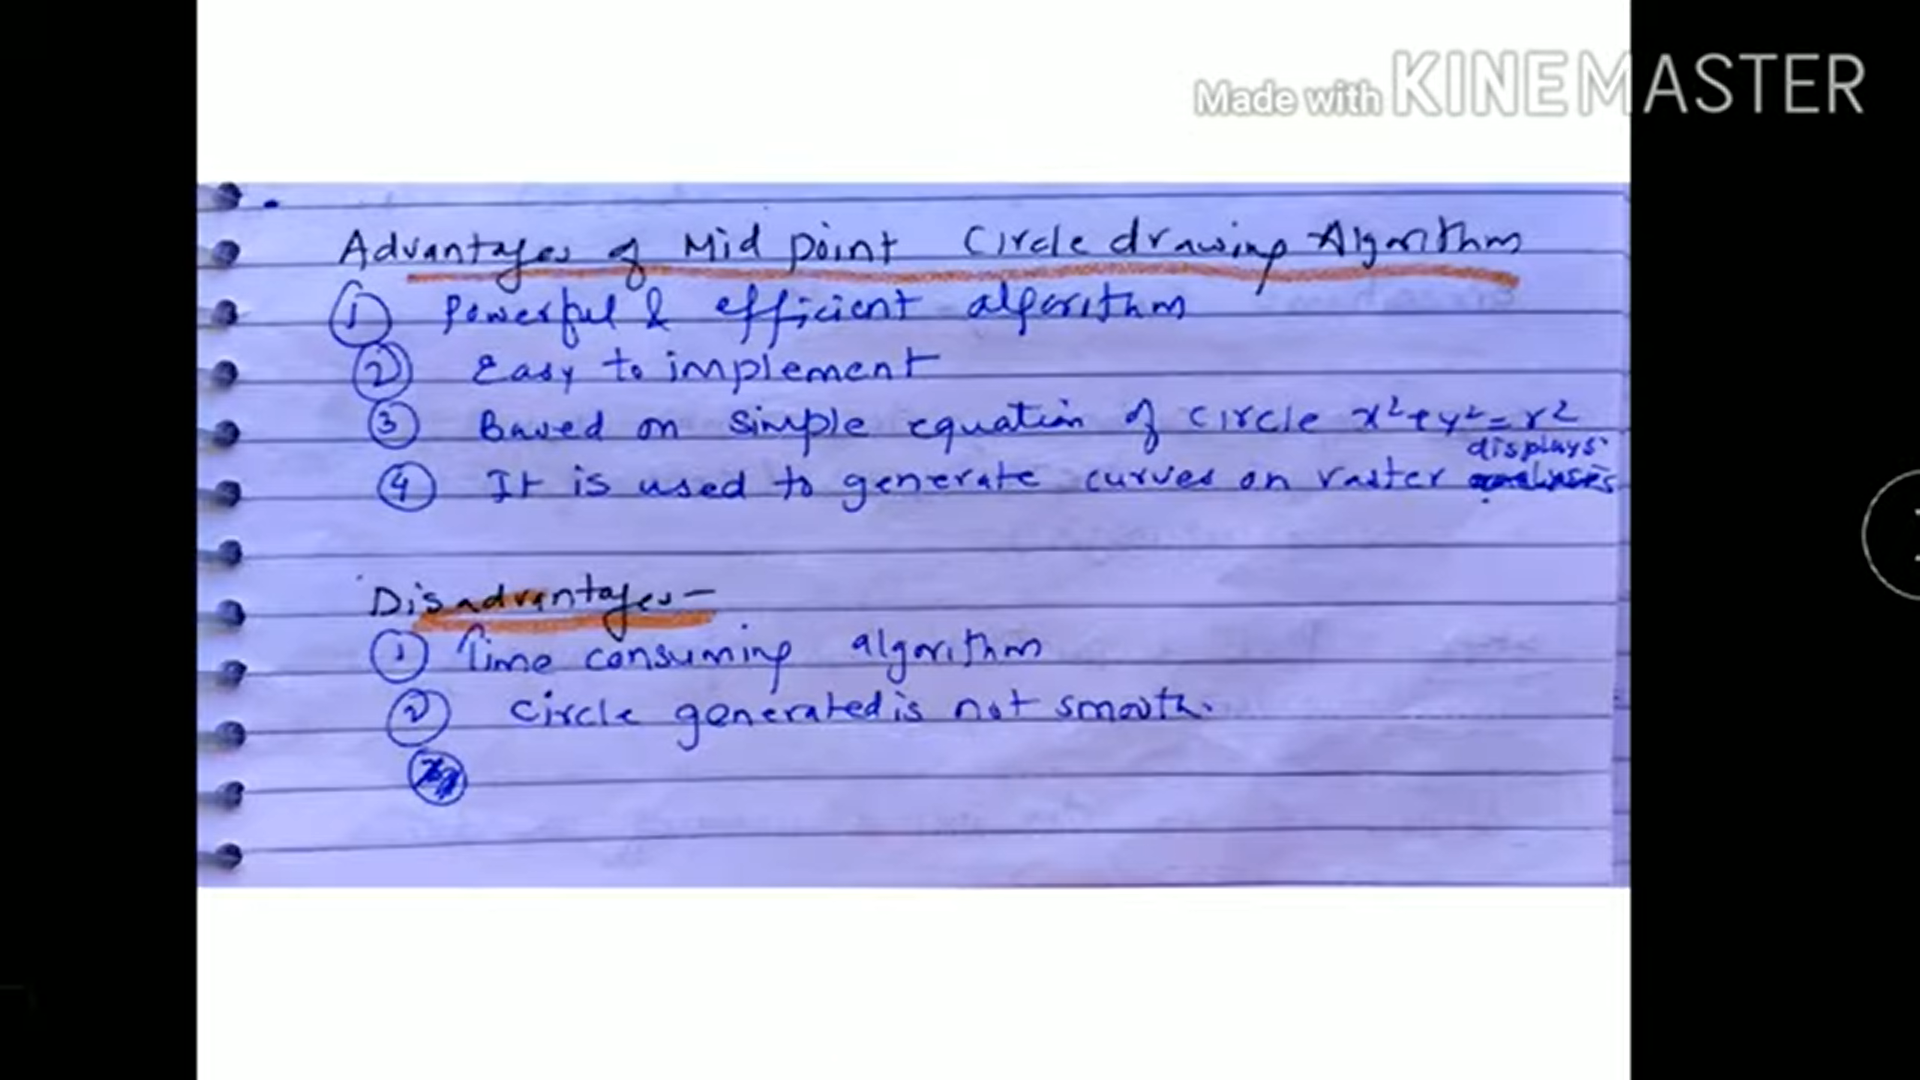 Made with KINEMASTER
Advantages of Mid point Circle drawing Algorithm
① Powerful & efficient algorithm
② Easy to implement
③ Based on simple equation of circle x²+y²=r²
displays
④ It is used to generate curves on raster
Disadvantages-
① Time consuming algorithm
② Circle generated is not smooth.